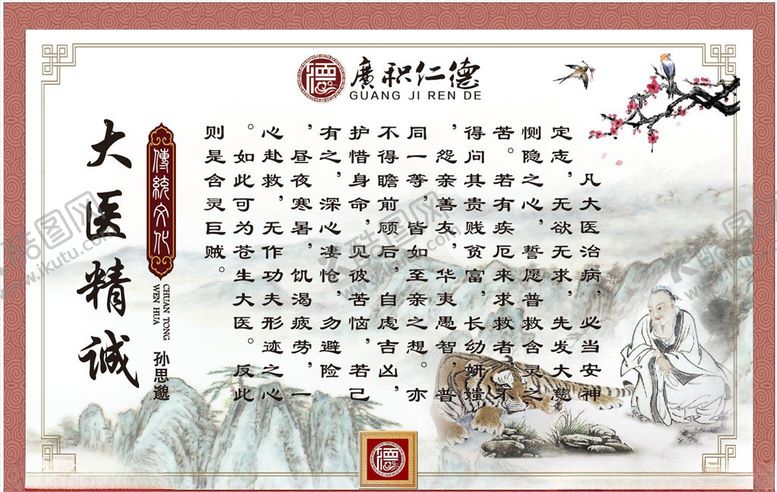 德
廣积仁德
GUANG JI REN DE
凡大医治病，必当安神
定志，无欲无求，先发大慈
恻隐之心，誓愿普救含灵之
苦。若有疾厄来求救者，不
得问其贵贱贫富，长幼妍媸
，怨亲善友，华夷愚智，普
同一等，皆如至亲之想。亦
不得瞻前顾后，自虑吉凶，
护惜身命，见彼苦恼，若己
有之，深心凄怆，勿避险
，昼夜寒暑，饥渴疲劳，一
心赴救，无作功夫形迹之心
。如此可为苍生大医。反此
则是含灵巨贼。
傳統文化
CHUAN TONG
WEN HUA
孙思邈
大医精诚
德
酷图网
www.ikutu.com